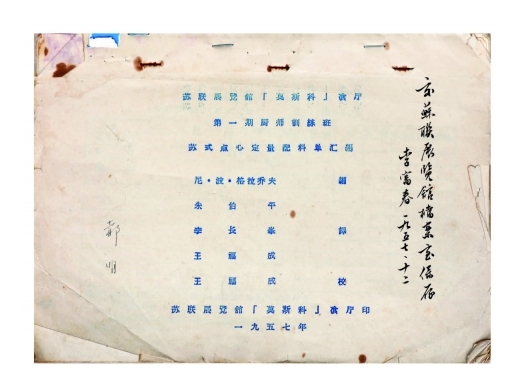 苏联展览館「莫斯科」餐厅
第一期厨师訓练班
苏式点心定量配料单汇編
尼·波·格拉乔夫 編
朱伯平
李長峯 譯
王福成
王福成 校
苏联展览館「莫斯科」餐厅印
一九五七年
京蘇聯展覽館檔案室借存
李富春 一九五七·十二
郝明